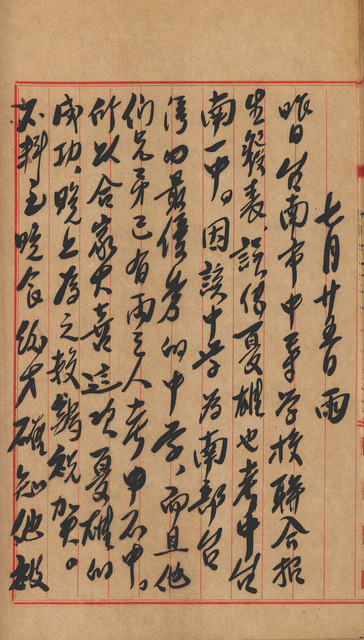 七月廿五日 雨
昨日台南市中等学校聯合招
生發表、誤傳憂雄也考中台
南一中。因該中学為南部台
湾的最優秀的中学、而且他
们兄弟已有兩三人考中不中。
所以合家大喜這次憂雄的
成功、晚上為之殺鷄祝賀。
不料至晚食後才確知他被